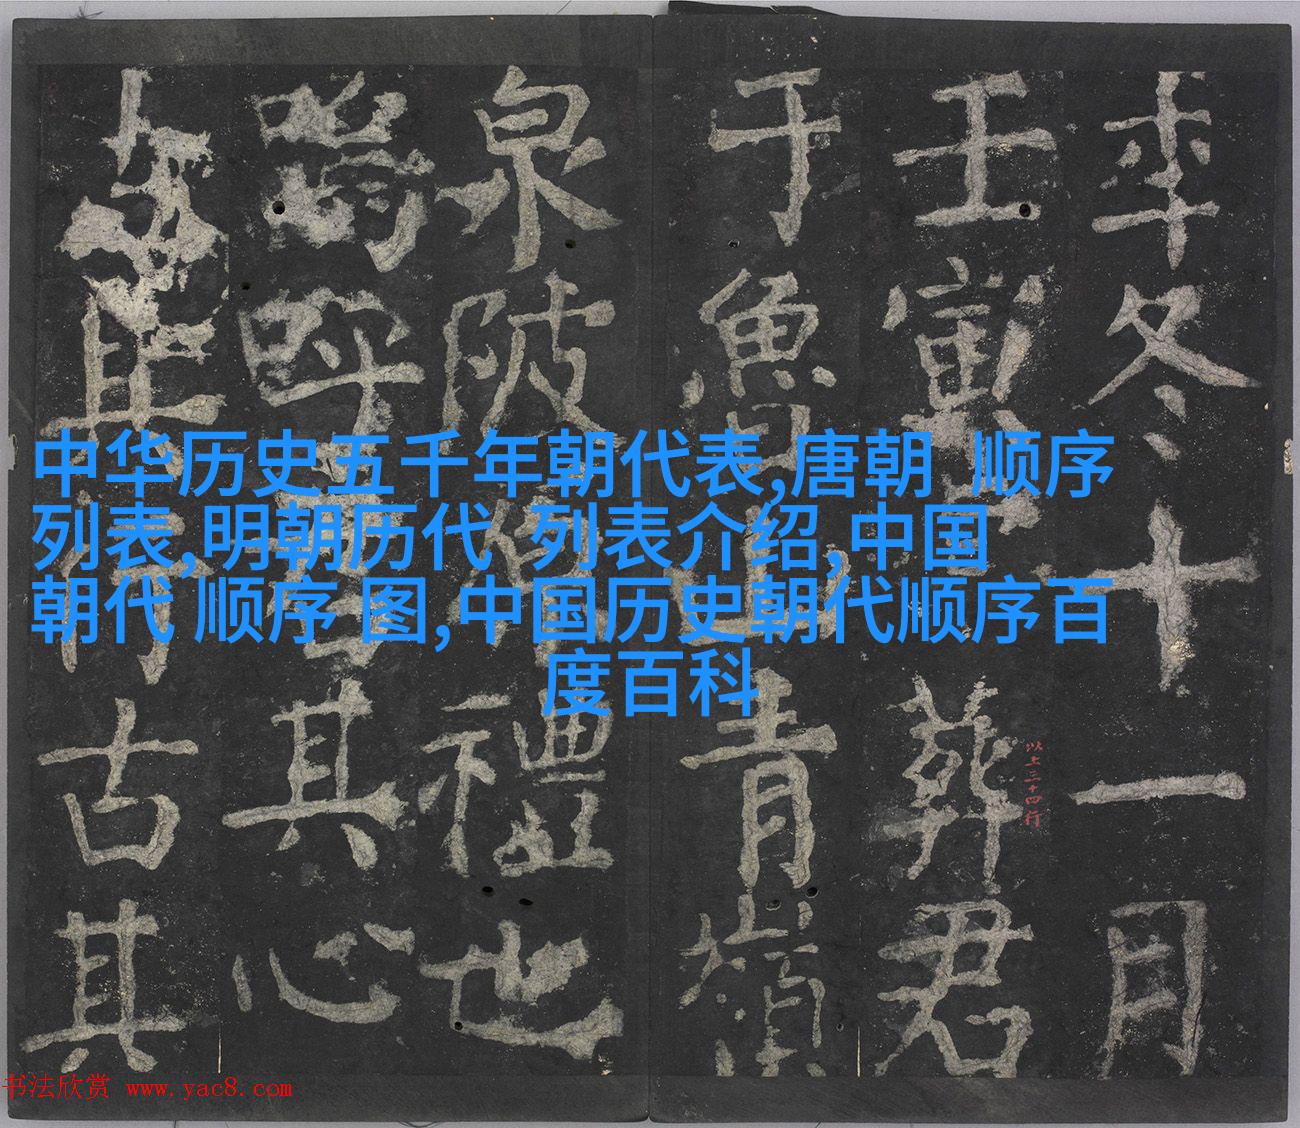 中华历史五千年朝代表,唐朝 顺序
列表,明朝历代 列表介绍,中国
朝代 顺序 图,中国历史朝代顺序百
度百科
年冬十一月
壬寅葬君
于魯山青嶺
泉陂禮也
嗚呼其心
其行古其
以上三十四行
书法欣赏 www.yac8.com